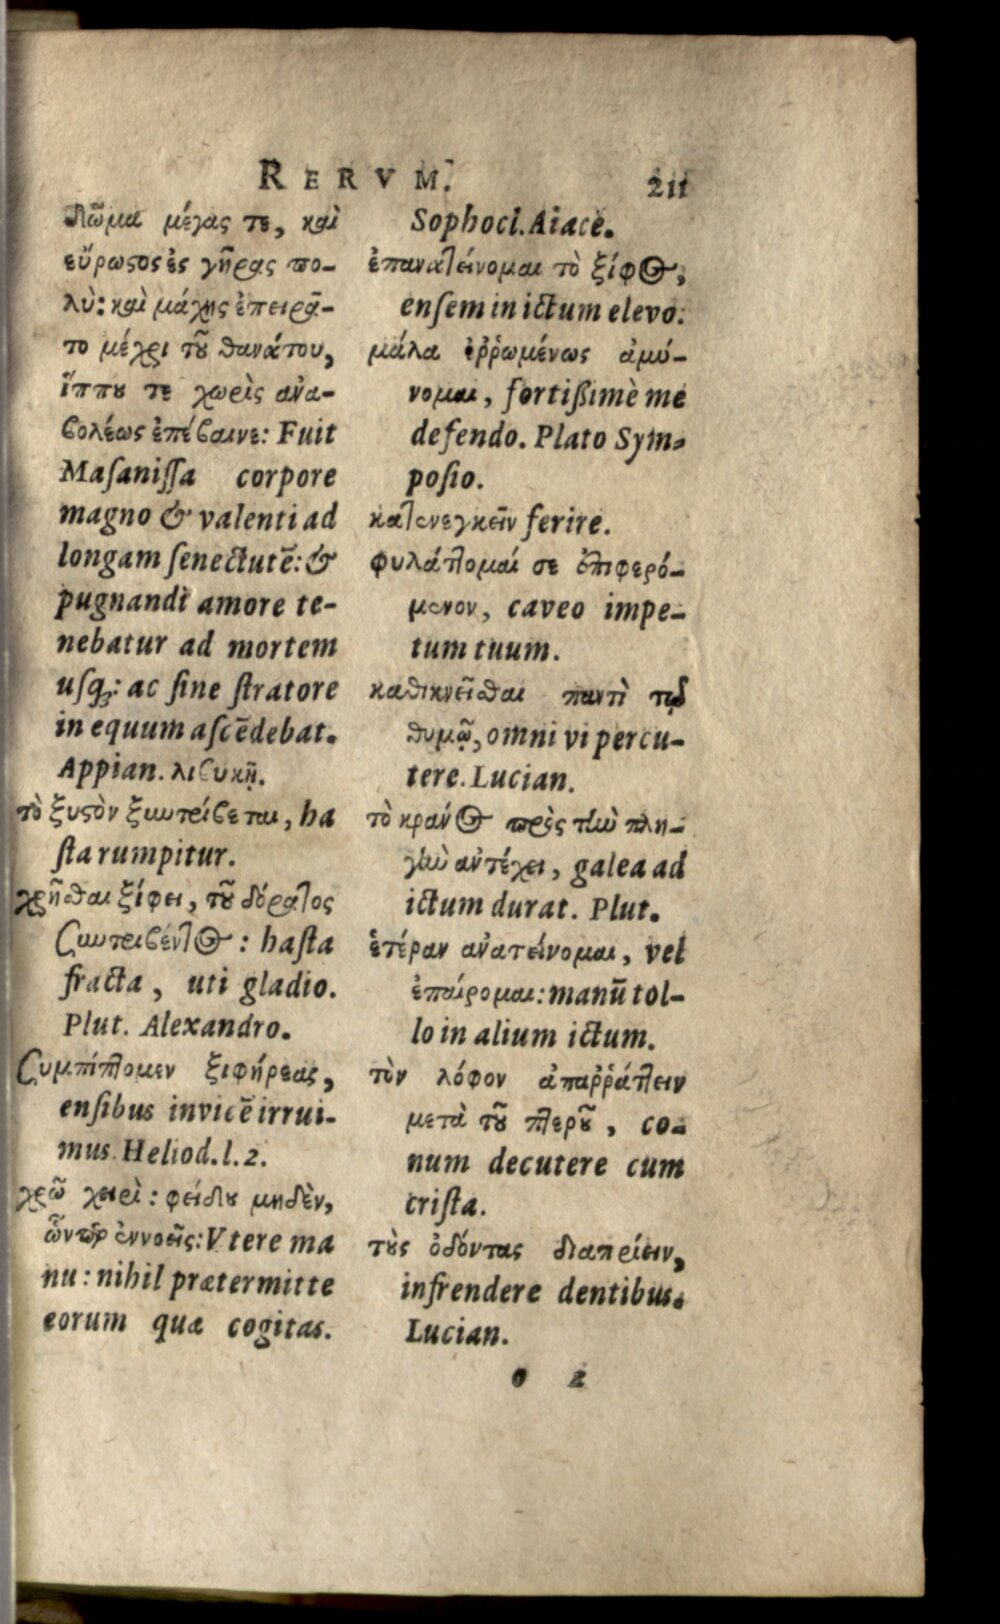 RERVM. 211
δῶμα μέγας τε, καὶ
εὔρωςος ἐς γῆρας πο-
λὺ: καὶ μάχης ἐπειρᾶ-
το μέχρι τοῦ θανάτου,
ἵππου τε χωρὶς ἀνα-
βολέως ἐπέβαινε: Fuit
Masanissa corpore
magno & valenti ad
longam senectutẽ: &
pugnandi amore te-
nebatur ad mortem
usq;: ac sine stratore
in equum ascẽdebat.
Appian. λιβυκῇ.
τὸ ξυςὸν ξυντρίβεται, ha
sta rumpitur.
χρῆσθαι ξίφει, τοῦ δόρατος
συντριβέντος: hasta
fracta, uti gladio.
Plut. Alexandro.
Συμπίπτομεν ξιφήρεας,
ensibus invicẽ irrui-
mus. Heliod. l. 2.
χρῶ χειρὶ: φείδου μηδὲν,
ὧνπερ ἐννοεῖς: Vtere ma
nu: nihil prætermitte
eorum quæ cogitas.
Sophocl. Aiace.
ἐπανατείνομαι τὸ ξίφος,
ensem in ictum elevo.
μάλα ἐῤῥωμένως ἀμύ-
νομαι, fortißimè me
defendo. Plato Sym-
posio.
κατενεγκεῖν ferire.
φυλάττομαί σε ἐπιφερό-
μενον, caveo impe-
tum tuum.
καθικνεῖσθαι παντὶ τῷ
θυμῷ, omni vi percu-
tere. Lucian.
τὸ κράνος πρὸς τὴν πλη-
γὴν ἀντέχει, galea ad
ictum durat. Plut.
ἑτέραν ἀνατείνομαι, vel
ἐπαίρομαι: manũ tol-
lo in alium ictum.
τὸν λόφον ἀπαῤῥάττειν
μετὰ τοῦ πτεροῦ, co-
num decutere cum
crista.
τοὺς ὀδόντας διαπρίειν,
infrendere dentibus.
Lucian.
o 2